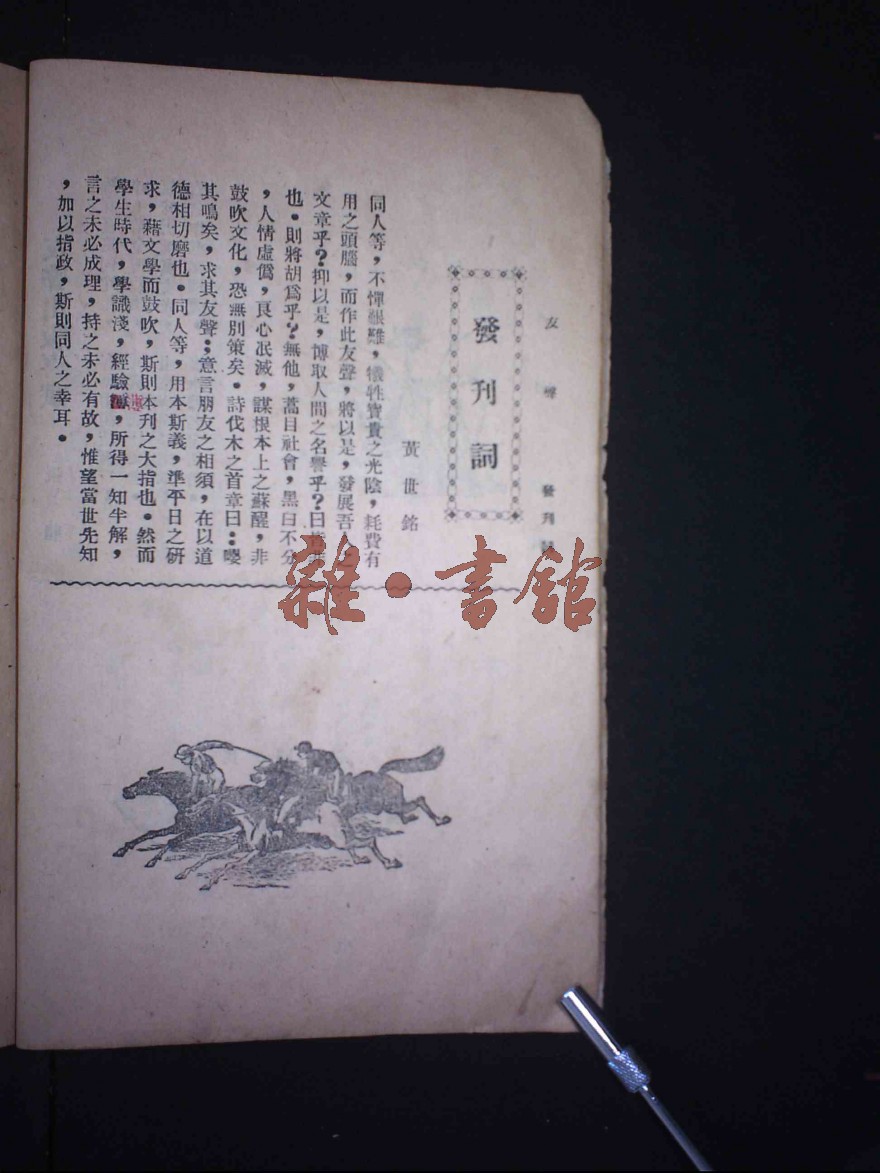 友聲
發刊詞
發刊詞
黃世銘
同人等，不憚艱難，犧牲寶貴之光陰，耗費有
用之頭腦，而作此友聲，將以是，發展吾之
文章乎？抑以是，博取人間之名譽乎？曰皆非
也。則將胡爲乎？無他，蒿目社會，黑白不分
，人情虛僞，良心泯滅，謀根本上之蘇醒，非
鼓吹文化，恐無別策矣。詩伐木之首章曰：嚶
其鳴矣，求其友聲；意言朋友之相須，在以道
德相切磨也。同人等，用本斯義，準平日之研
求，藉文學而鼓吹，斯則本刊之大指也。然而
學生時代，學識淺，經驗，所得一知半解，
言之未必成理，持之未必有故，惟望當世先知
，加以指政，斯則同人之幸耳。
雜·書館